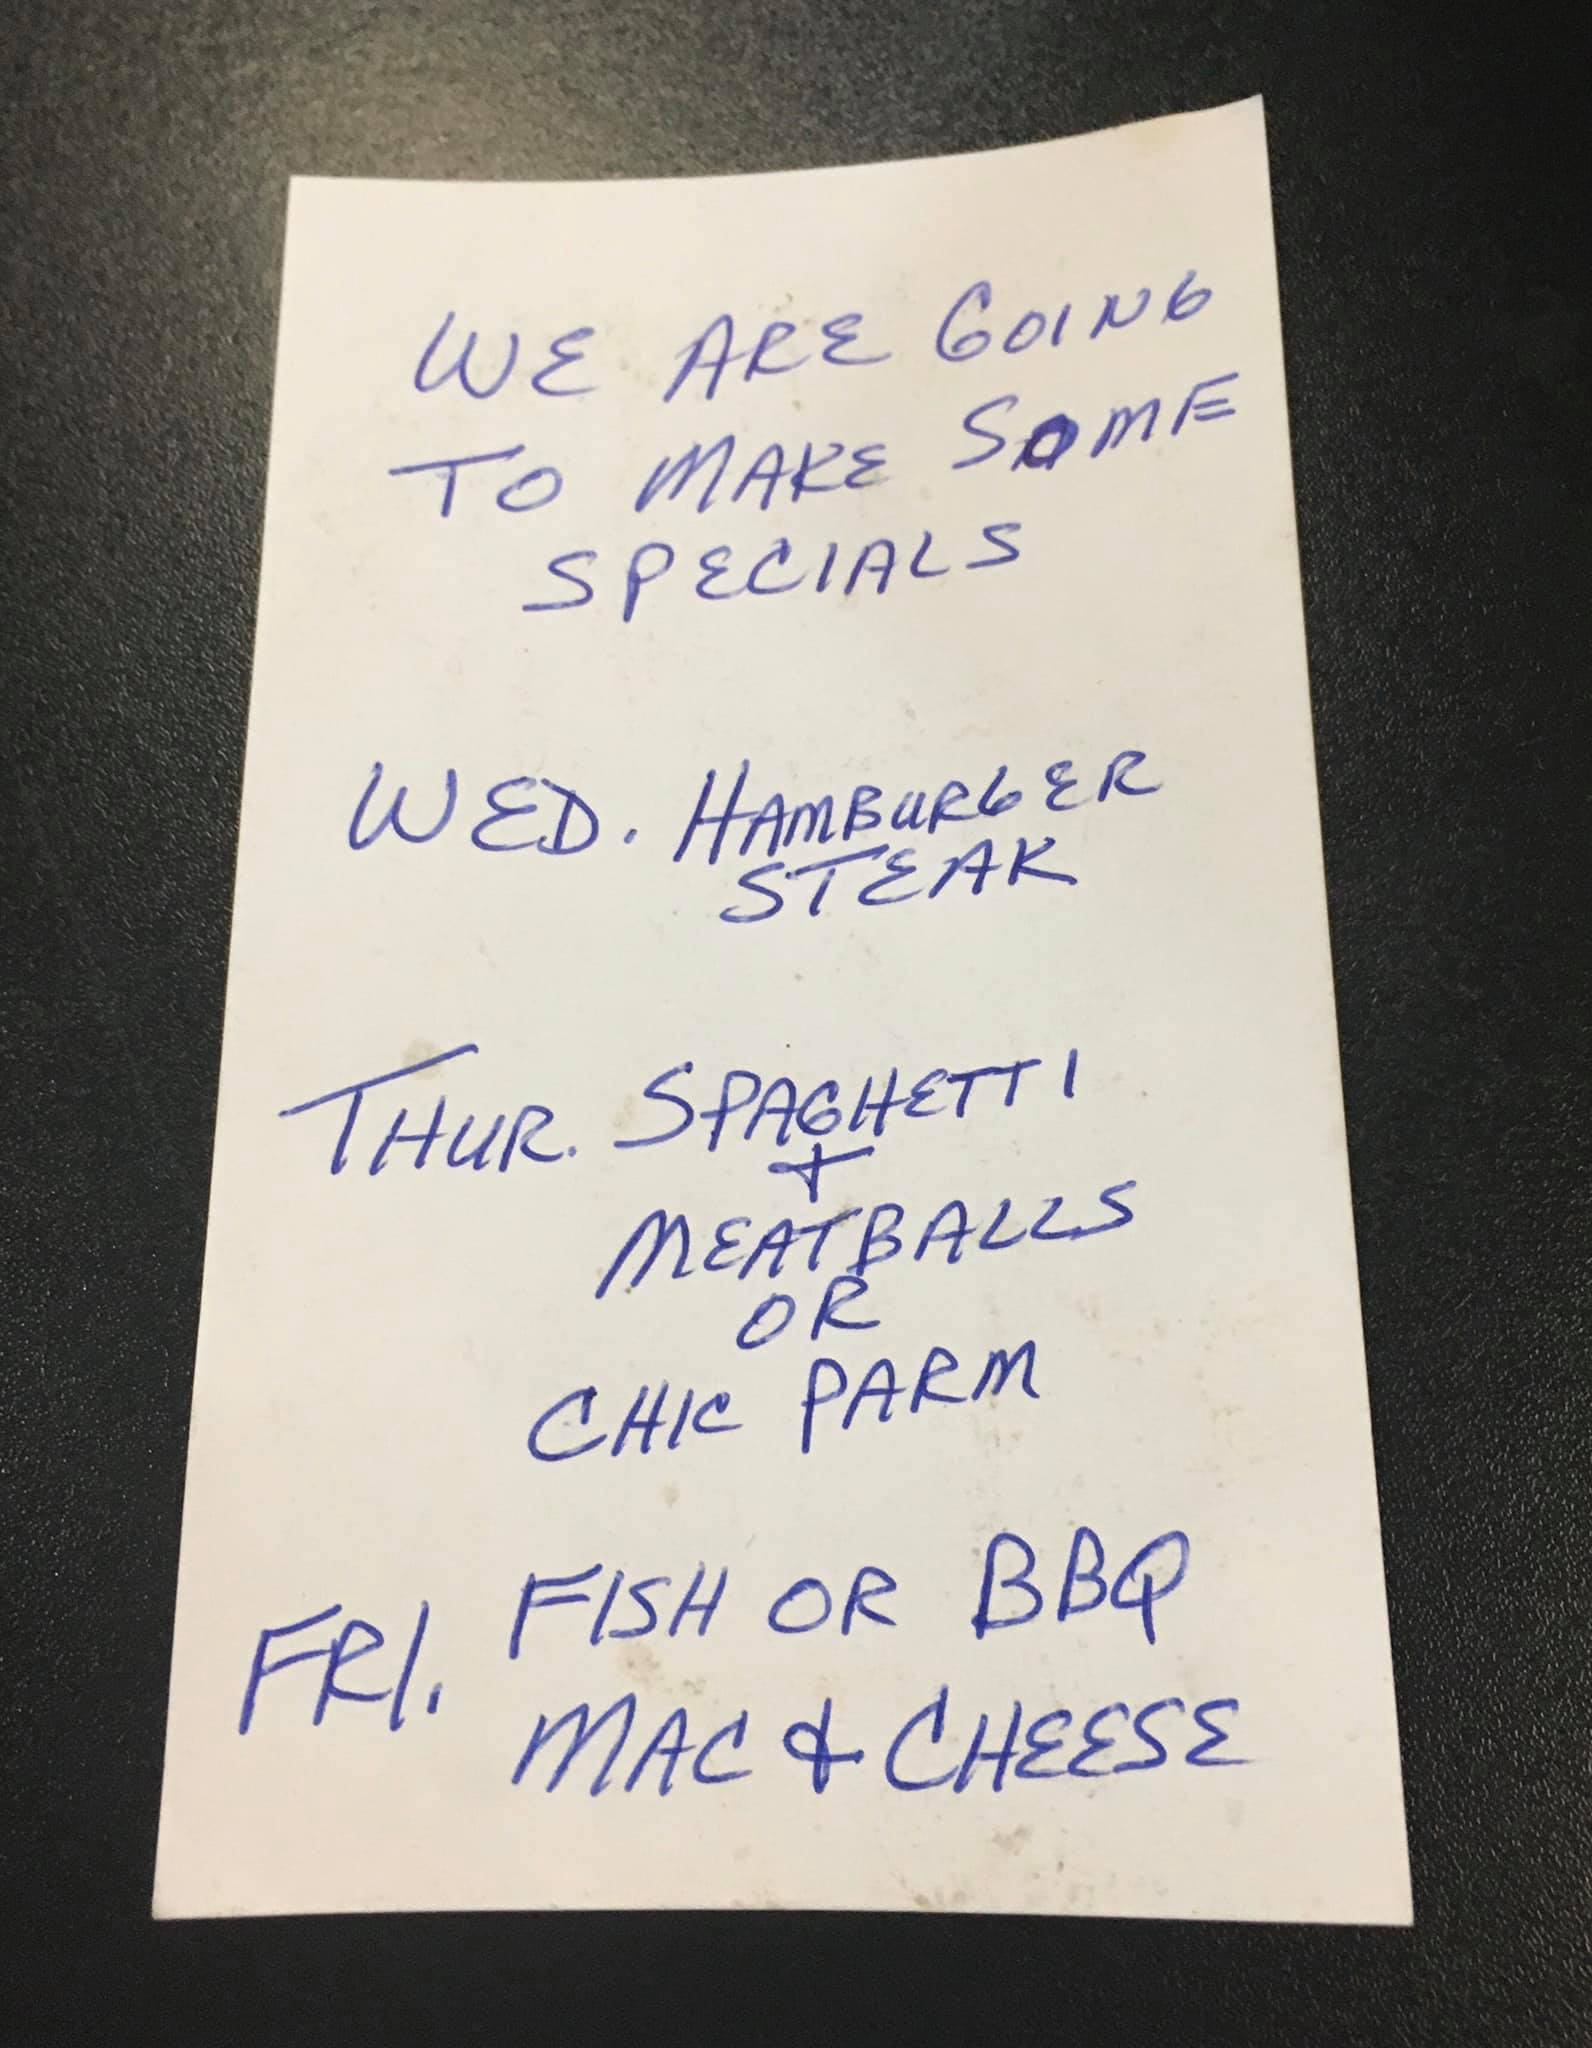 WE ARE GOING
TO MAKE SOME
SPECIALS
WED. HAMBURGER
STEAK
THUR. SPAGHETTI
+
MEATBALLS
OR
CHIC PARM
FRI. FISH OR BBQ
MAC & CHEESE